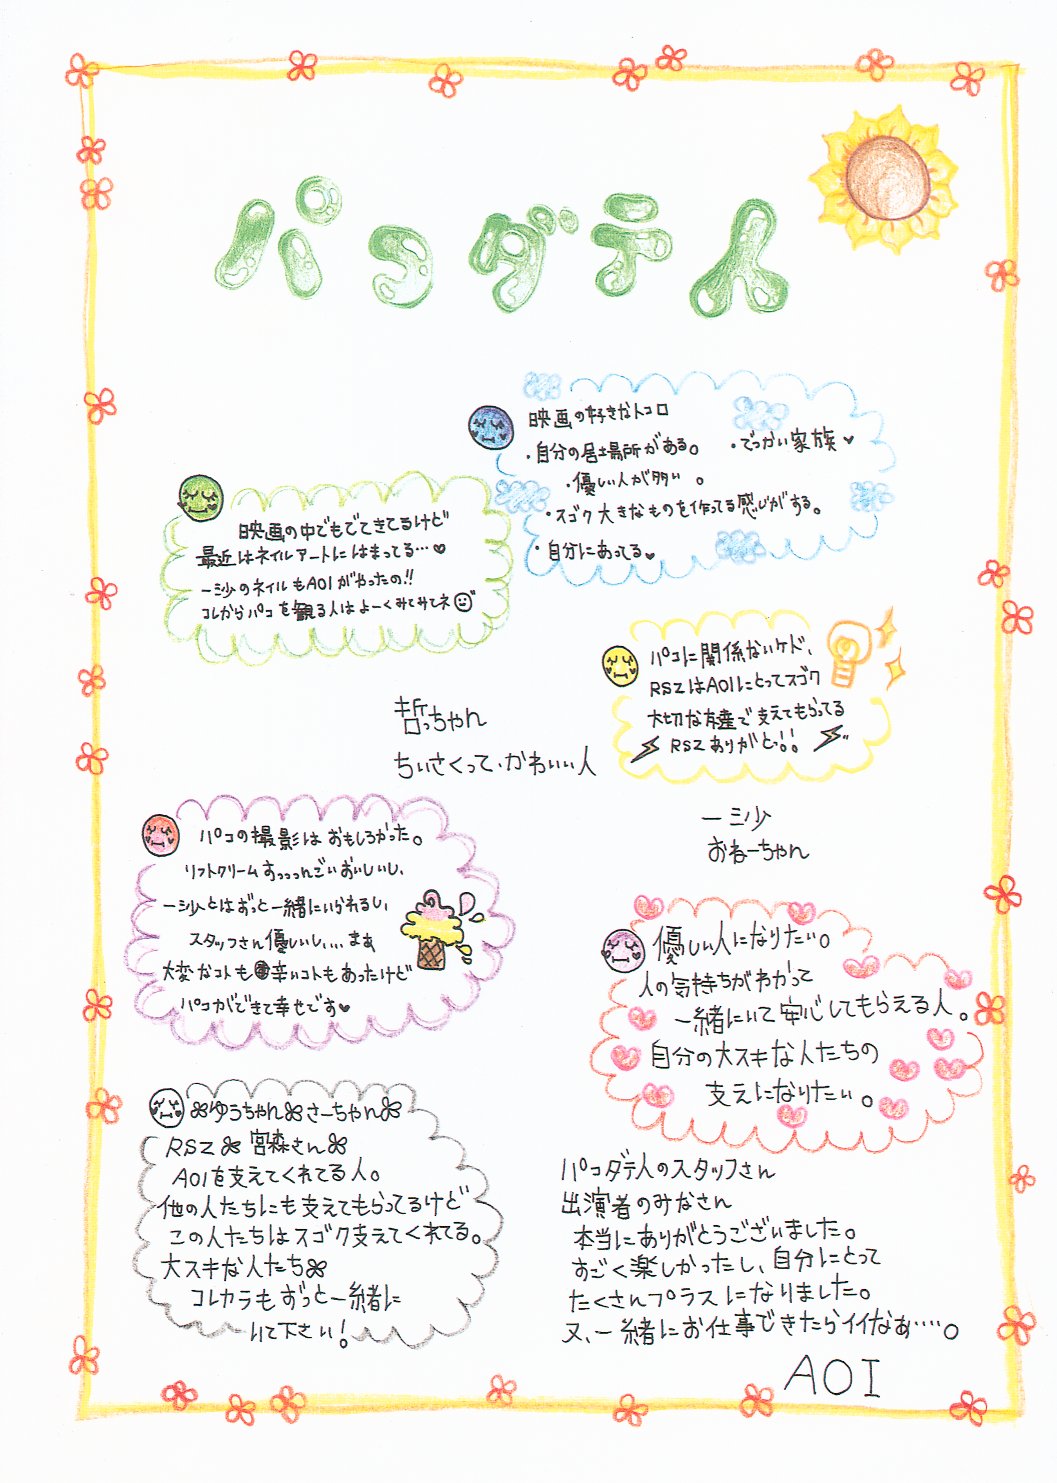 パコダテ人
映画の好きなトコロ
・自分の居場所がある。
・でっかい家族♥
・優しい人が多い。
・スゴク大きなものを作ってる感じがする。
・自分にあってる♥
映画の中でもでてきてるけど
最近はネイルアートにはまってる…♥
一沙のネイルもAOIがやったの!!
コレからパコを観る人はよーくみてみてネ
パコに関係ないケド、
RSZはAOIにとってスゴク
大切な友達で支えてもらってる
RSZありがとっ!!
哲っちゃん
ちいさくって、かわいい人
一沙
おねーちゃん
パコの撮影はおもしろかった。
ソフトクリームすっっっんごいおいしいし、
一沙とはずっと一緒にいられるし、
スタッフさん優しいし、、、まぁ
大変なコトも辛いコトもあったけど
パコができて幸せです♥
優しい人になりたい。
人の気持ちがわかって
一緒にいて安心してもらえる人。
自分の大スキな人たちの
支えになりたい。
ゆうちゃん さーちゃん
RSZ 宮森さん
AOIを支えてくれてる人。
他の人たちにも支えてもらってるけど
この人たちはスゴク支えてくれてる。
大スキな人たち
コレカラもずっと一緒に
いて下さい!
パコダテ人のスタッフさん
出演者のみなさん
本当にありがとうございました。
すごく楽しかったし、自分にとって
たくさんプラスになりました。
又、一緒にお仕事できたらイイなぁ…。
AOI